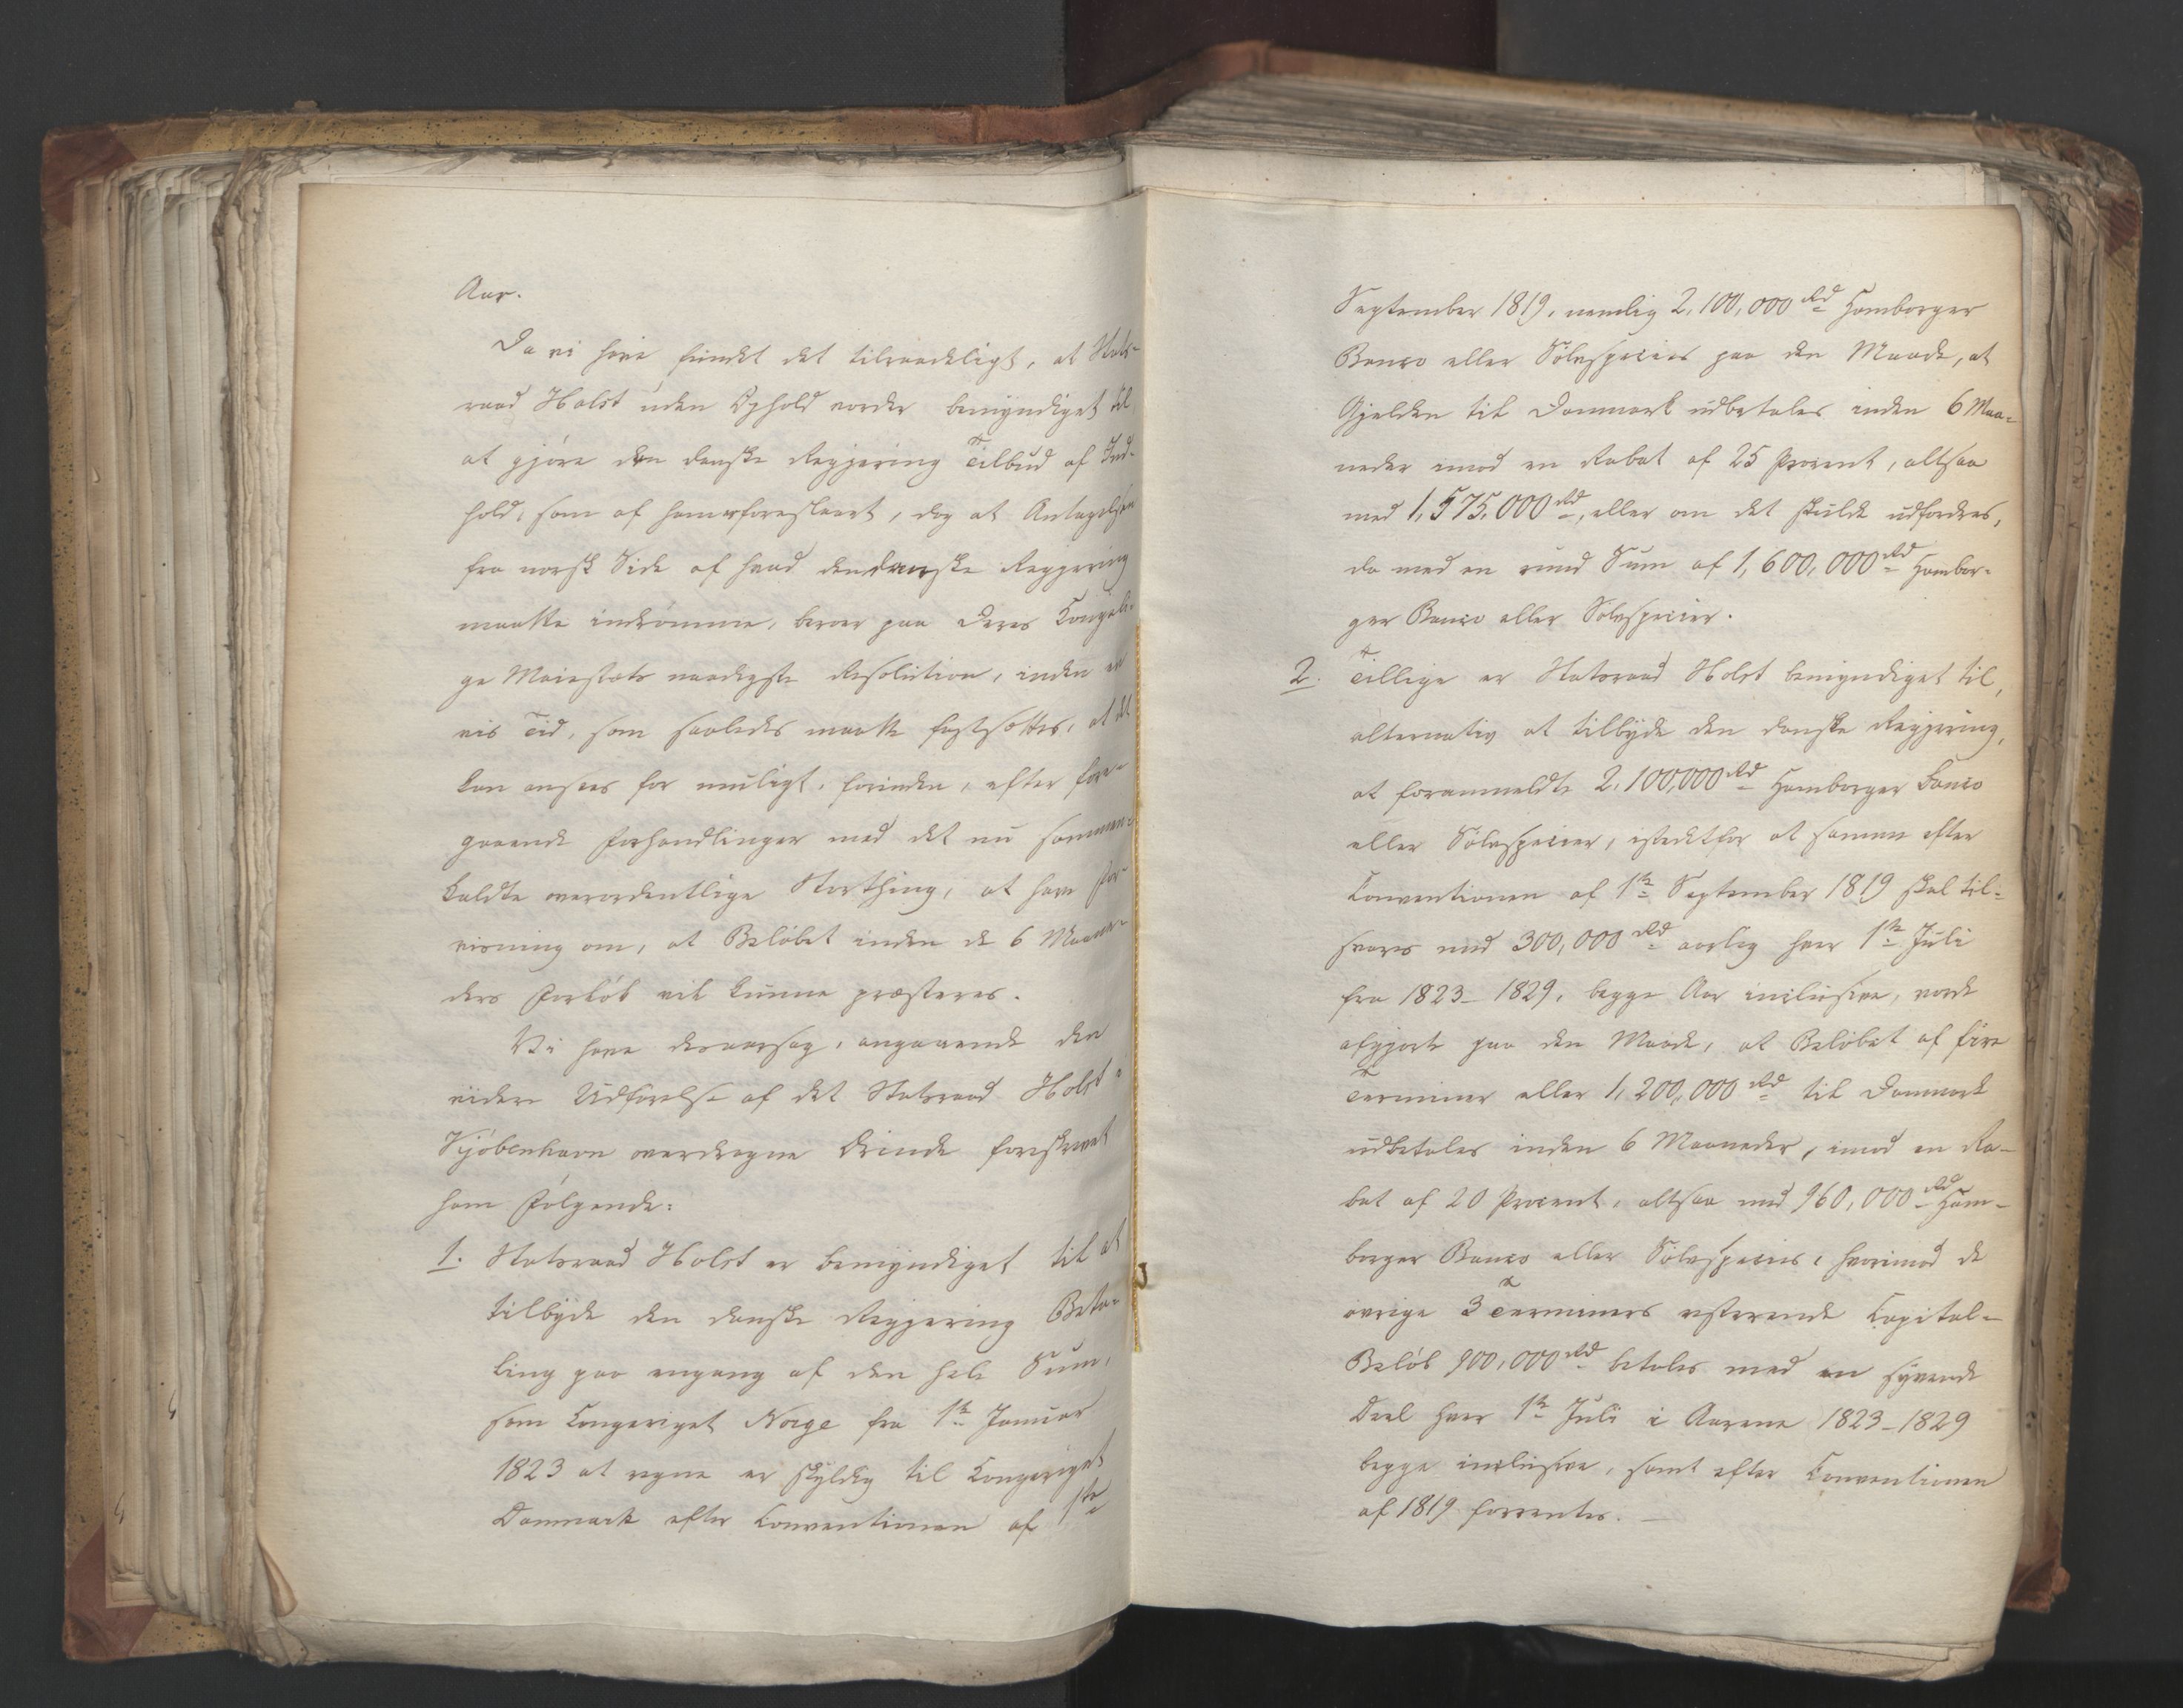 Aar.
Da vi have fundet det tilraadeligt, at Stats-
raad Holst uden Ophold vorder bemyndiget til
at gjöre den danske Regjering Tilbud af Ind-
hold, som af ham er foreslaaet, dog at Antagelsen
fra norsk Side af hvad den danske Regjering
maatte indrömme, beroer paa Deres Kongeli-
ge Majestæts naadigste Resolution, inden en
vis Tid, som saaledes maatte fastsættes, at det
kan ansees for muligt, forinden, efter fore-
gaaende Forhandlinger med det nu sammen-
kaldte overordentlige Storthing, at have For-
visning om, at Belöbet inden de 6 Maane-
ders Forlöb vil kunne præsteres.
Vi have desaarsag, angaaende den
videre Udförelse af det Statsraad Holst i
Kjöbenhavn overdragne Ærinde foreskrevet
ham Fölgende:
1. Statsraad Holst er bemyndiget til at
tilbyde den danske Regjering Beta-
ling paa engang af den hele Sum,
som Kongeriget Norge fra 1ste Januar
1823 at regne er skyldig til Kongeriget
Danmark efter Conventionen af 1ste
September 1819, nemlig 2,100,000 Rd Hamborger
Banco eller Sölvspecies paa den Maade, at
Gjelden til Danmark udbetales inden 6 Maa-
neder imod en Rabat af 25 Procent, altsaa
med 1,575,000 Rd, eller om det skulde udfordres,
da med en rund Sum af 1,600,000 Rd Hambor-
ger Banco eller Sölvspecier.
2. Tillige er Statsraad Holst bemyndiget til,
alternativ at tilbyde den danske Regjering,
at foranmeldte 2,100,000 Rd Hamborger Banco
eller Sölvspecier, istedetfor at samme efter
Conventionen af 1ste September 1819 skal til-
svares med 300,000 Rd aarlig hver 1ste Juli
fra 1823-1829, begge Aar inclusive, vorde
afgjort paa den Maade, at Belöbet af fire
Terminer eller 1,200,000 Rd til Danmark
udbetales inden 6 Maaneder, imod en Ra-
bat af 20 Procent, altsaa med 960,000 Rd Ham-
borger Banco eller Sölvspecies, hvorimod de
övrige 3 Terminers resterende Capital-
Belöb 900,000 Rd betales med en syvende
Deel hver 1ste Juli i Aarene 1823-1829
begge inclusive, samt efter Conventionen
af 1819 forrentes. —